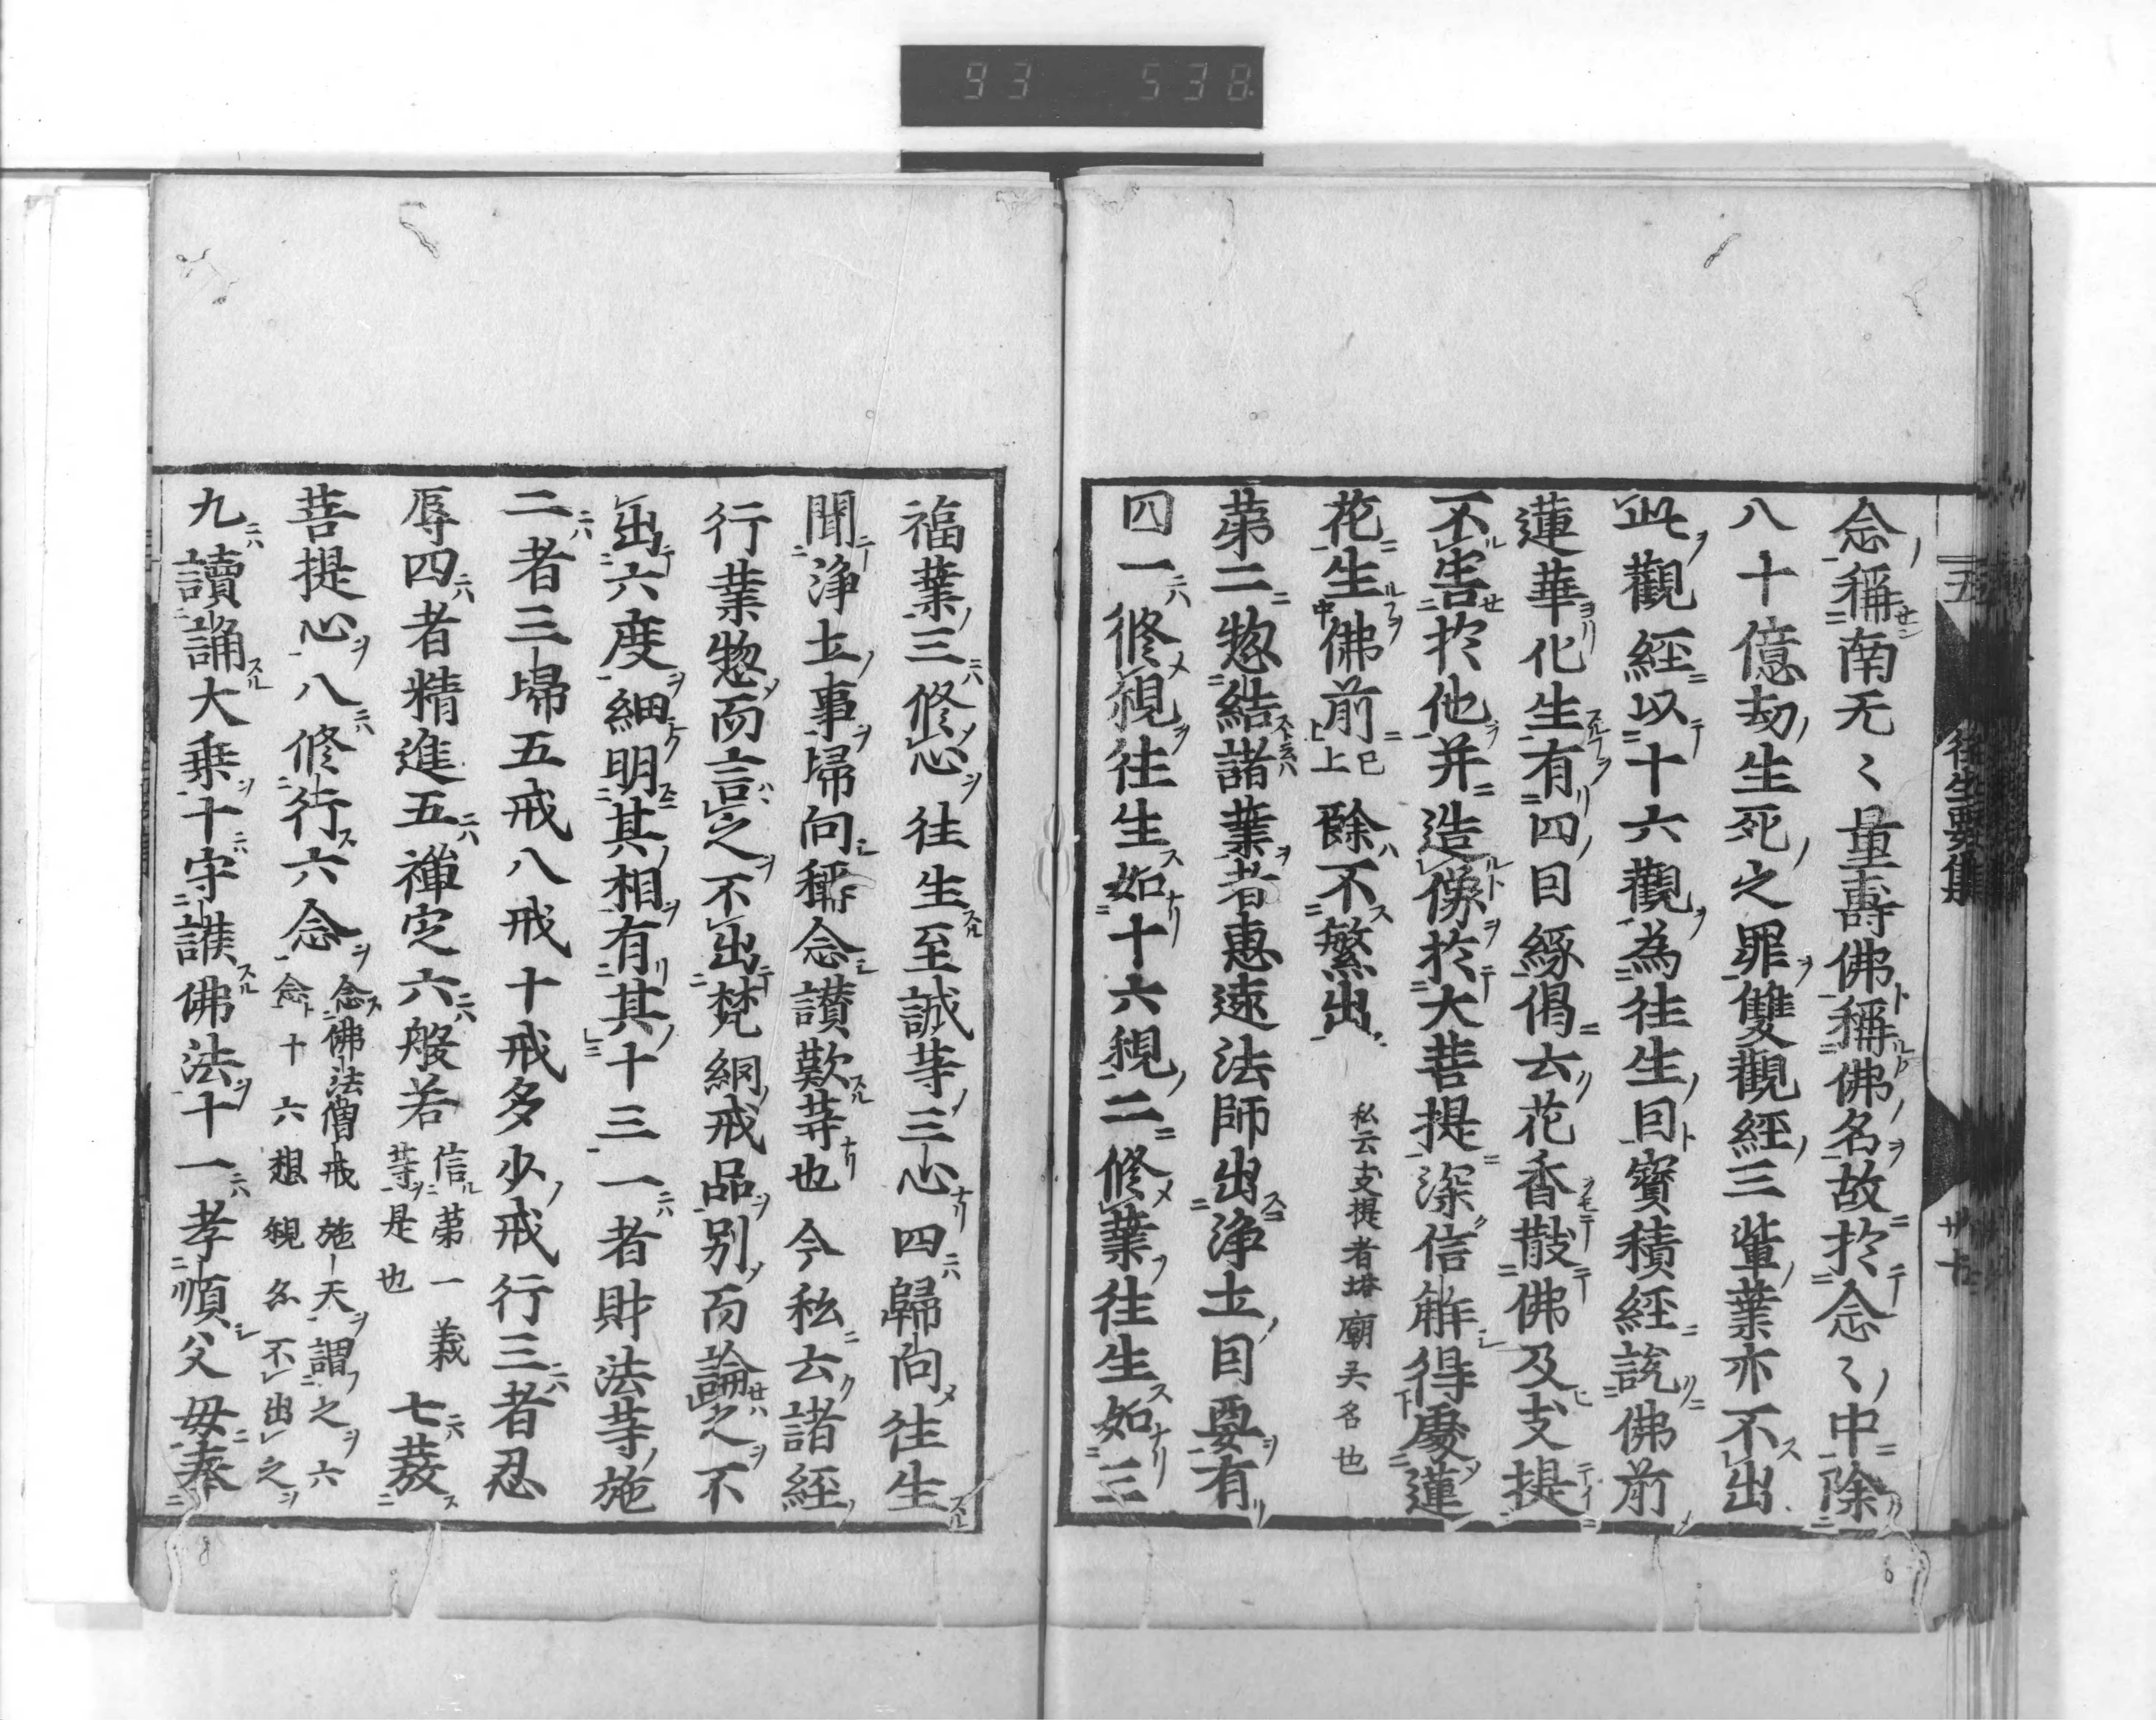 93 538
五 往生要集 廿七
念稱南无〻量壽佛稱佛名故於念〻中除
八十億劫生死之罪雙觀經三輩業亦不出
此觀經以十六觀為往生因寳積經説佛前
蓮華化生有四因縁偈云花香散佛及支提
不害於他并造像於大菩提深信解得處蓮
花生佛前已上餘不繁出私云支提者塔廟異名也
第二惣結諸業者惠遠法師出浄土因要有
四一修觀往生如十六觀二修業往生如三
福業三修心往生至誠等三心四歸向往生
聞浄土事帰向稱念讃歎等也今私云諸經
行業惣而言之不出梵網戒品別而論之不
出六度細明其相有其十三一者財法等施
二者三帰五戒八戒十戒多少戒行三者忍
辱四者精進五禅定六般若信第一義等是也七發
菩提心八修行六念念佛法僧戒施天謂之六念十六想觀亦不出之
九讀誦大乗十守護佛法十一孝順父母奉